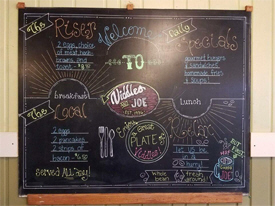 The
Riser
2 eggs, choice
of meat, hash
browns, and
toast
Welcome
TO
Daily
Specials
gourmet burgers
+ sandwiches,
homemade fries
& soups!
breakfast
lunch
Widdles
JOE
The
Local
2 eggs
2 pancakes
2 strips of
bacon
SERVED ALL DAY!
great
PLATE
let us be
in a
hurry!
whole
bean
fresh
ground!